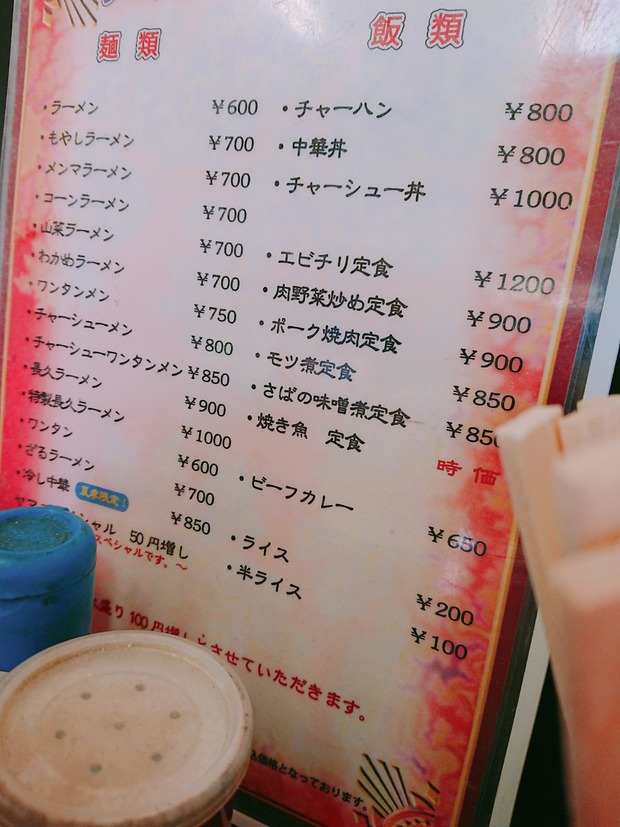 麺類
・ラーメン ¥600
・もやしラーメン ¥700
・メンマラーメン ¥700
・コーンラーメン ¥700
・山菜ラーメン ¥700
・わかめラーメン ¥700
・ワンタンメン ¥750
・チャーシューメン ¥800
・チャーシューワンタンメン ¥850
・長久ラーメン ¥900
・特製長久ラーメン ¥1000
・ワンタン ¥600
・ざるラーメン ¥700
・冷し中華 夏季限定! ¥850
シャル 50円増し
スペシャルです。～
盛り100円増しとさせていただきます。
飯類
・チャーハン ¥800
・中華丼 ¥800
・チャーシュー丼 ¥1000
・エビチリ定食 ¥1200
・肉野菜炒め定食 ¥900
・ポーク焼肉定食 ¥900
・モツ煮定食 ¥850
・さばの味噌煮定食 ¥850
・焼き魚 定食 時価
・ビーフカレー ¥650
・ライス ¥200
・半ライス ¥100
価格となっております。